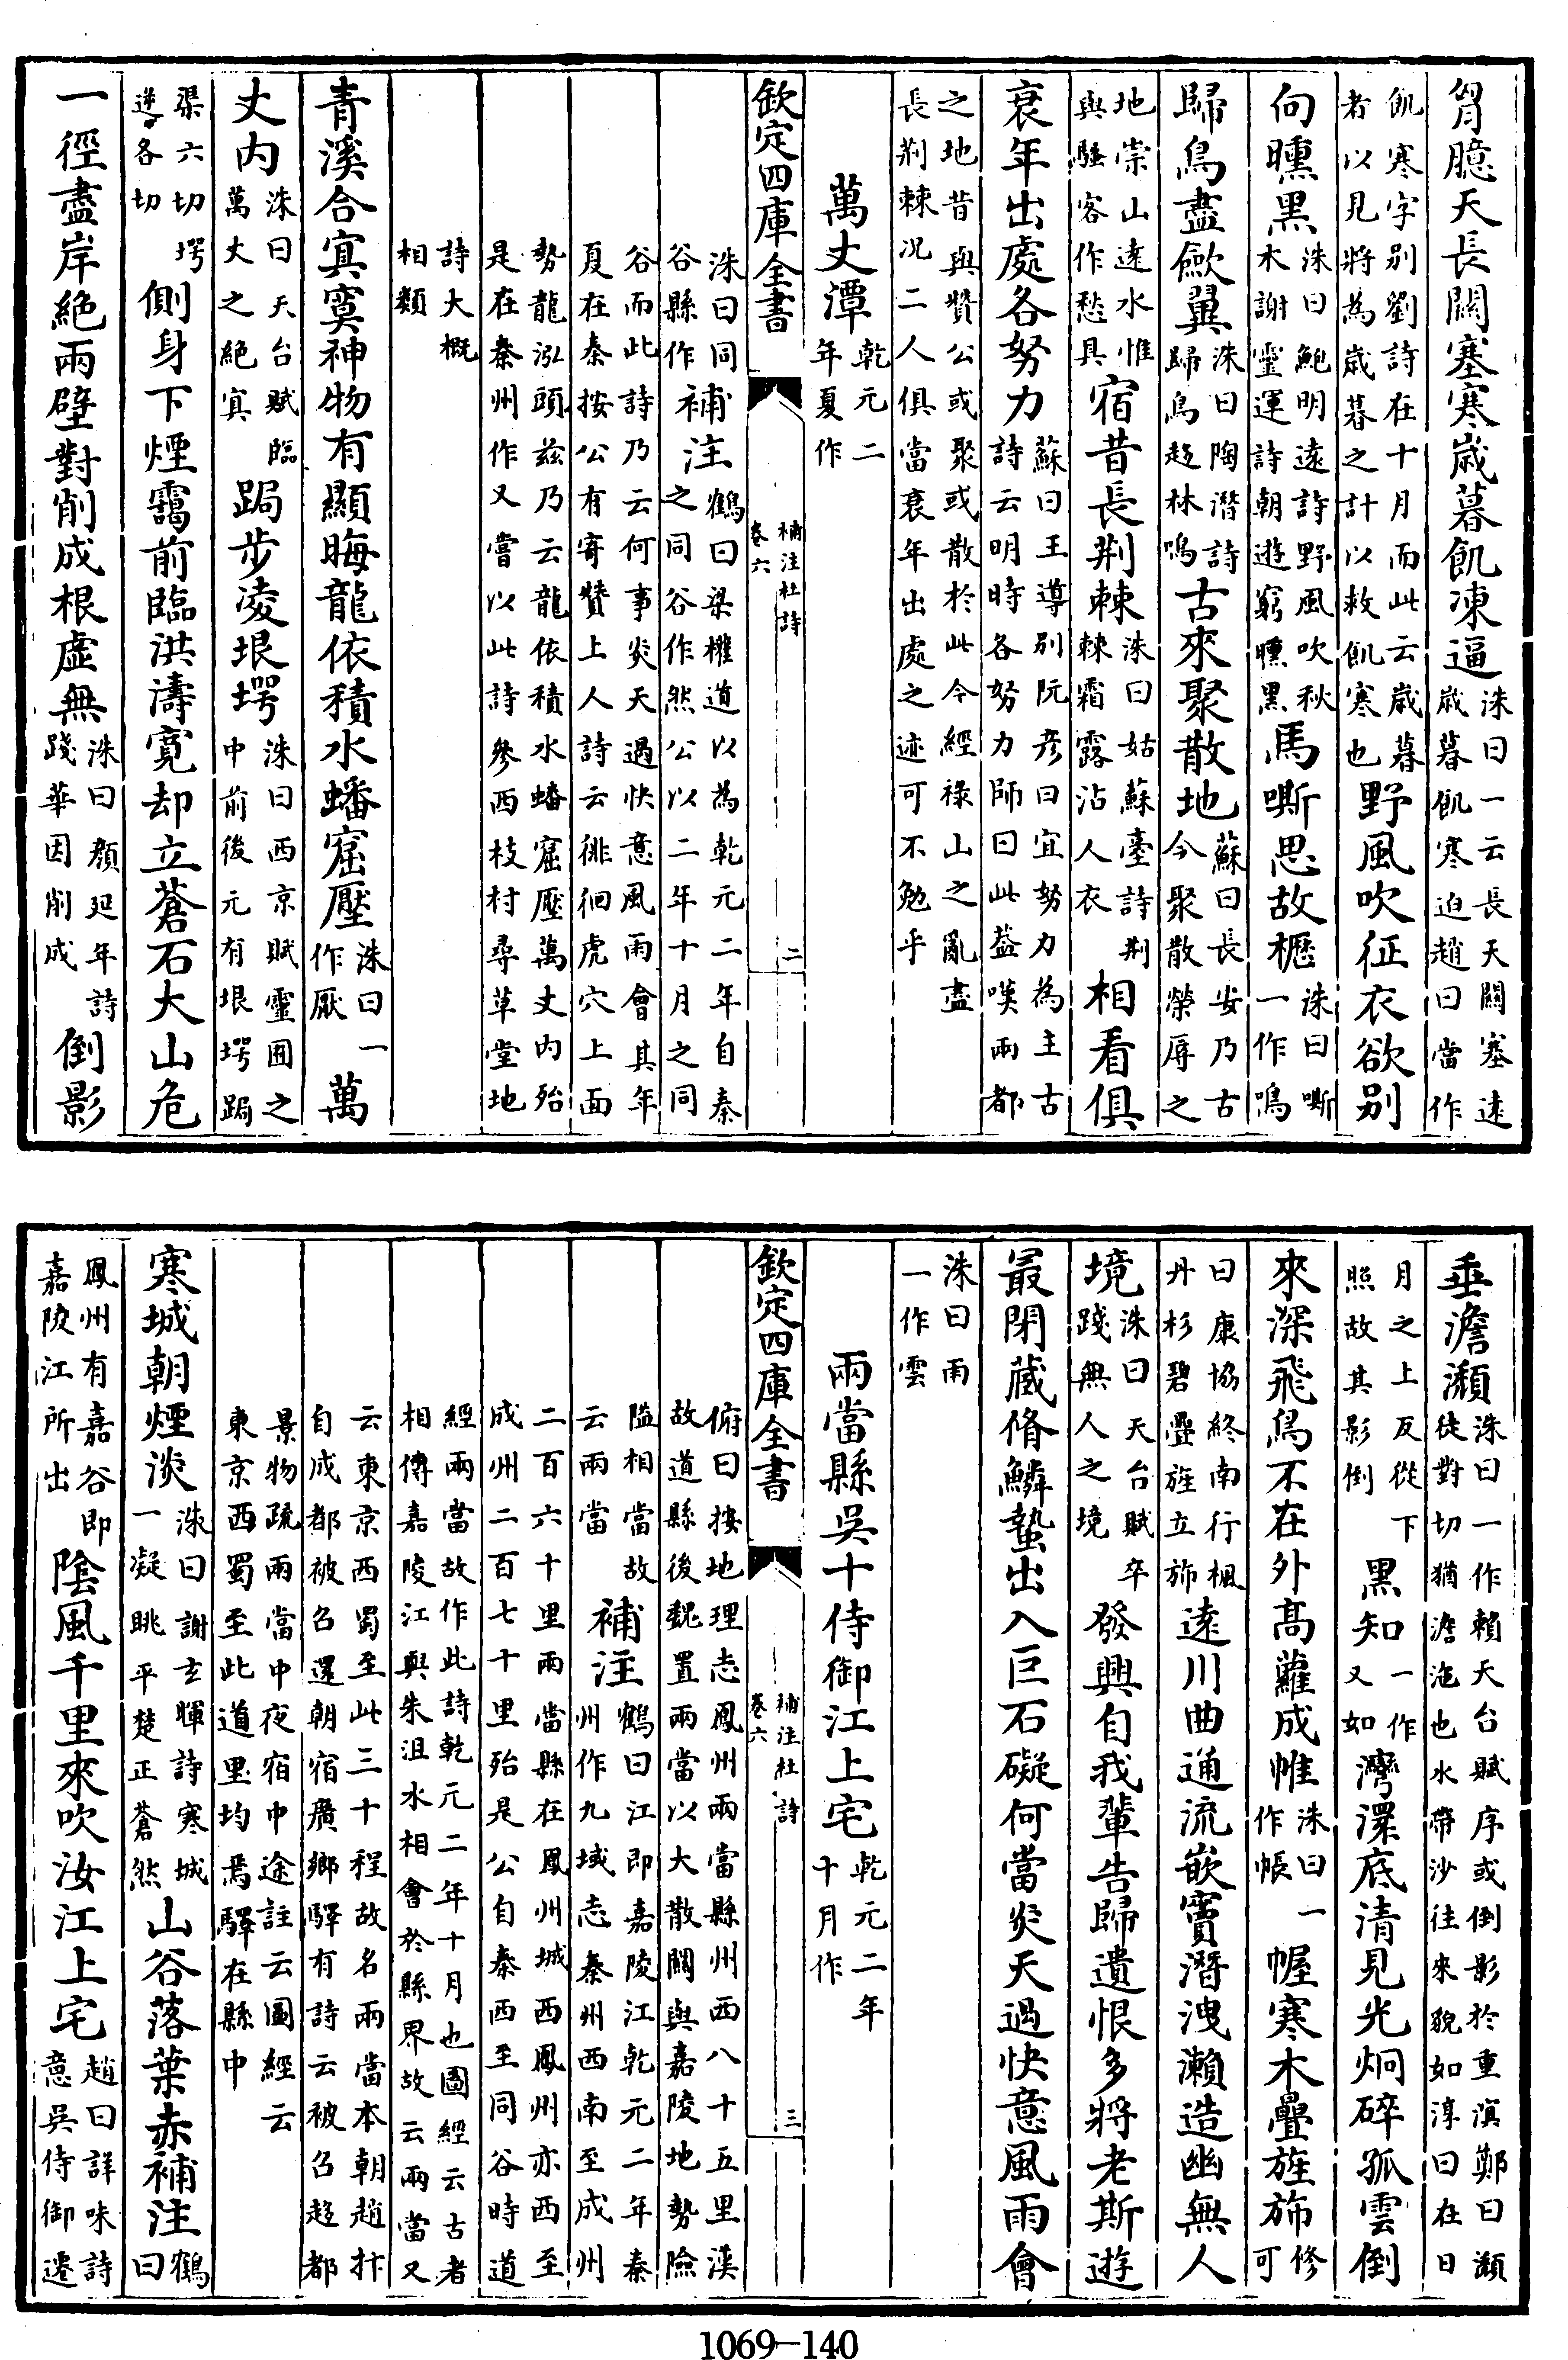 胷臆天長關塞寒歳暮飢凍逼洙曰一云長天闗塞逺歳暮飢寒迫趙曰當作
飢寒字别劉詩在十月而此云歳暮者以見將為歳暮之計以救飢寒也野風吹征衣欲别
向曛黑洙曰鮑明逺詩野風吹秋木謝靈運詩朝遊窮曛黑馬嘶思故櫪洙曰嘶一作鳴
歸鳥盡歛翼洙曰陶潛詩歸鳥趍林鳴古來聚散地蘇曰長安乃古今聚散榮辱之
地崇山逺水惟與騷客作愁具宿昔長荆棘洙曰姑蘇臺詩荆棘霜露沾人衣相看俱
衰年出處各努力蘇曰王導别阮彦曰宜努力為主古詩云明時各努力師曰此葢嘆兩都
之地昔與贊公或聚或散於此今經祿山之亂盡長荆棘况二人俱當衰年出處之迹可不勉乎
萬丈潭乾元二年夏作
欽定四庫全書 補注杜詩卷六 二
洙曰同谷縣作補注鶴曰梁權道以為乾元二年自秦之同谷作然公以二年十月之同
谷而此詩乃云何事炎天過快意風雨會其年夏在秦按公有寄贊上人詩云徘徊虎穴上面
勢龍泓頭兹乃云龍依積水蟠窟壓萬丈内殆是在秦州作又嘗以此詩參西枝村尋草堂地
詩大概相類
青溪合㝠寞神物有顯晦龍依積水蟠窟壓洙曰一作厭萬
丈内洙曰天台賦臨萬丈之絶㝠跼步凌垠堮洙曰西京賦靈囿之中前後元有垠堮跼
渠六切堮逆各切側身下煙靄前臨洪濤寛却立蒼石大山危
一徑盡岸絶兩壁對削成根虚無洙曰顔延年詩踐華因削成倒影
垂澹瀩洙曰一作賴天台賦序或倒影於重溟鄭曰瀩徒對切猶澹沲也水帶沙往來貌如淳曰在日
月之上反從下照故其影倒黑知一作又如灣澴底清見光炯碎孤雲倒
來深飛鳥不在外高蘿成帷洙曰一作帳幄寒木疊旌斾修可
曰康協終南行楓丹杉碧疊旌立斾逺川曲通流嵌竇潛洩瀨造幽無人
境洙曰天台賦卒踐無人之境發興自我輩告歸遺恨多將老斯遊
最閉蔵脩鱗蟄出入巨石礙何當炎天過快意風雨會
洙曰雨一作雲
兩當縣吳十侍御江上宅乾元二年十月作
欽定四庫全書 補注杜詩卷六 三
俯曰按地理志鳳州兩當縣州西八十五里漢故道縣後魏置兩當以大散闗與嘉陵地勢險
隘相當故云兩當補注鶴曰江即嘉陵江乾元二年秦州作九域志秦州西南至成州
二百六十里兩當縣在鳳州城西鳳州亦西至成州二百七十里殆是公自秦西至同谷時道
經兩當故作此詩乾元二年十月也圖經云古者相傳嘉陵江與朱沮水相會於縣界故云兩當又
云東京西蜀至此三十程故名兩當本朝趙抃自成都被召還朝宿廣鄉驛有詩云被召趍都
景物疏兩當中夜宿中途註云圖經云東京西蜀至此道里均焉驛在縣中
寒城朝煙淡洙曰謝玄暉詩寒城一凝眺平楚正蒼然山谷落葉赤補注鶴曰
鳳州有嘉谷即嘉陵江所出陰風千里來吹汝江上宅趙曰詳味詩意吳侍御遷
1069—140